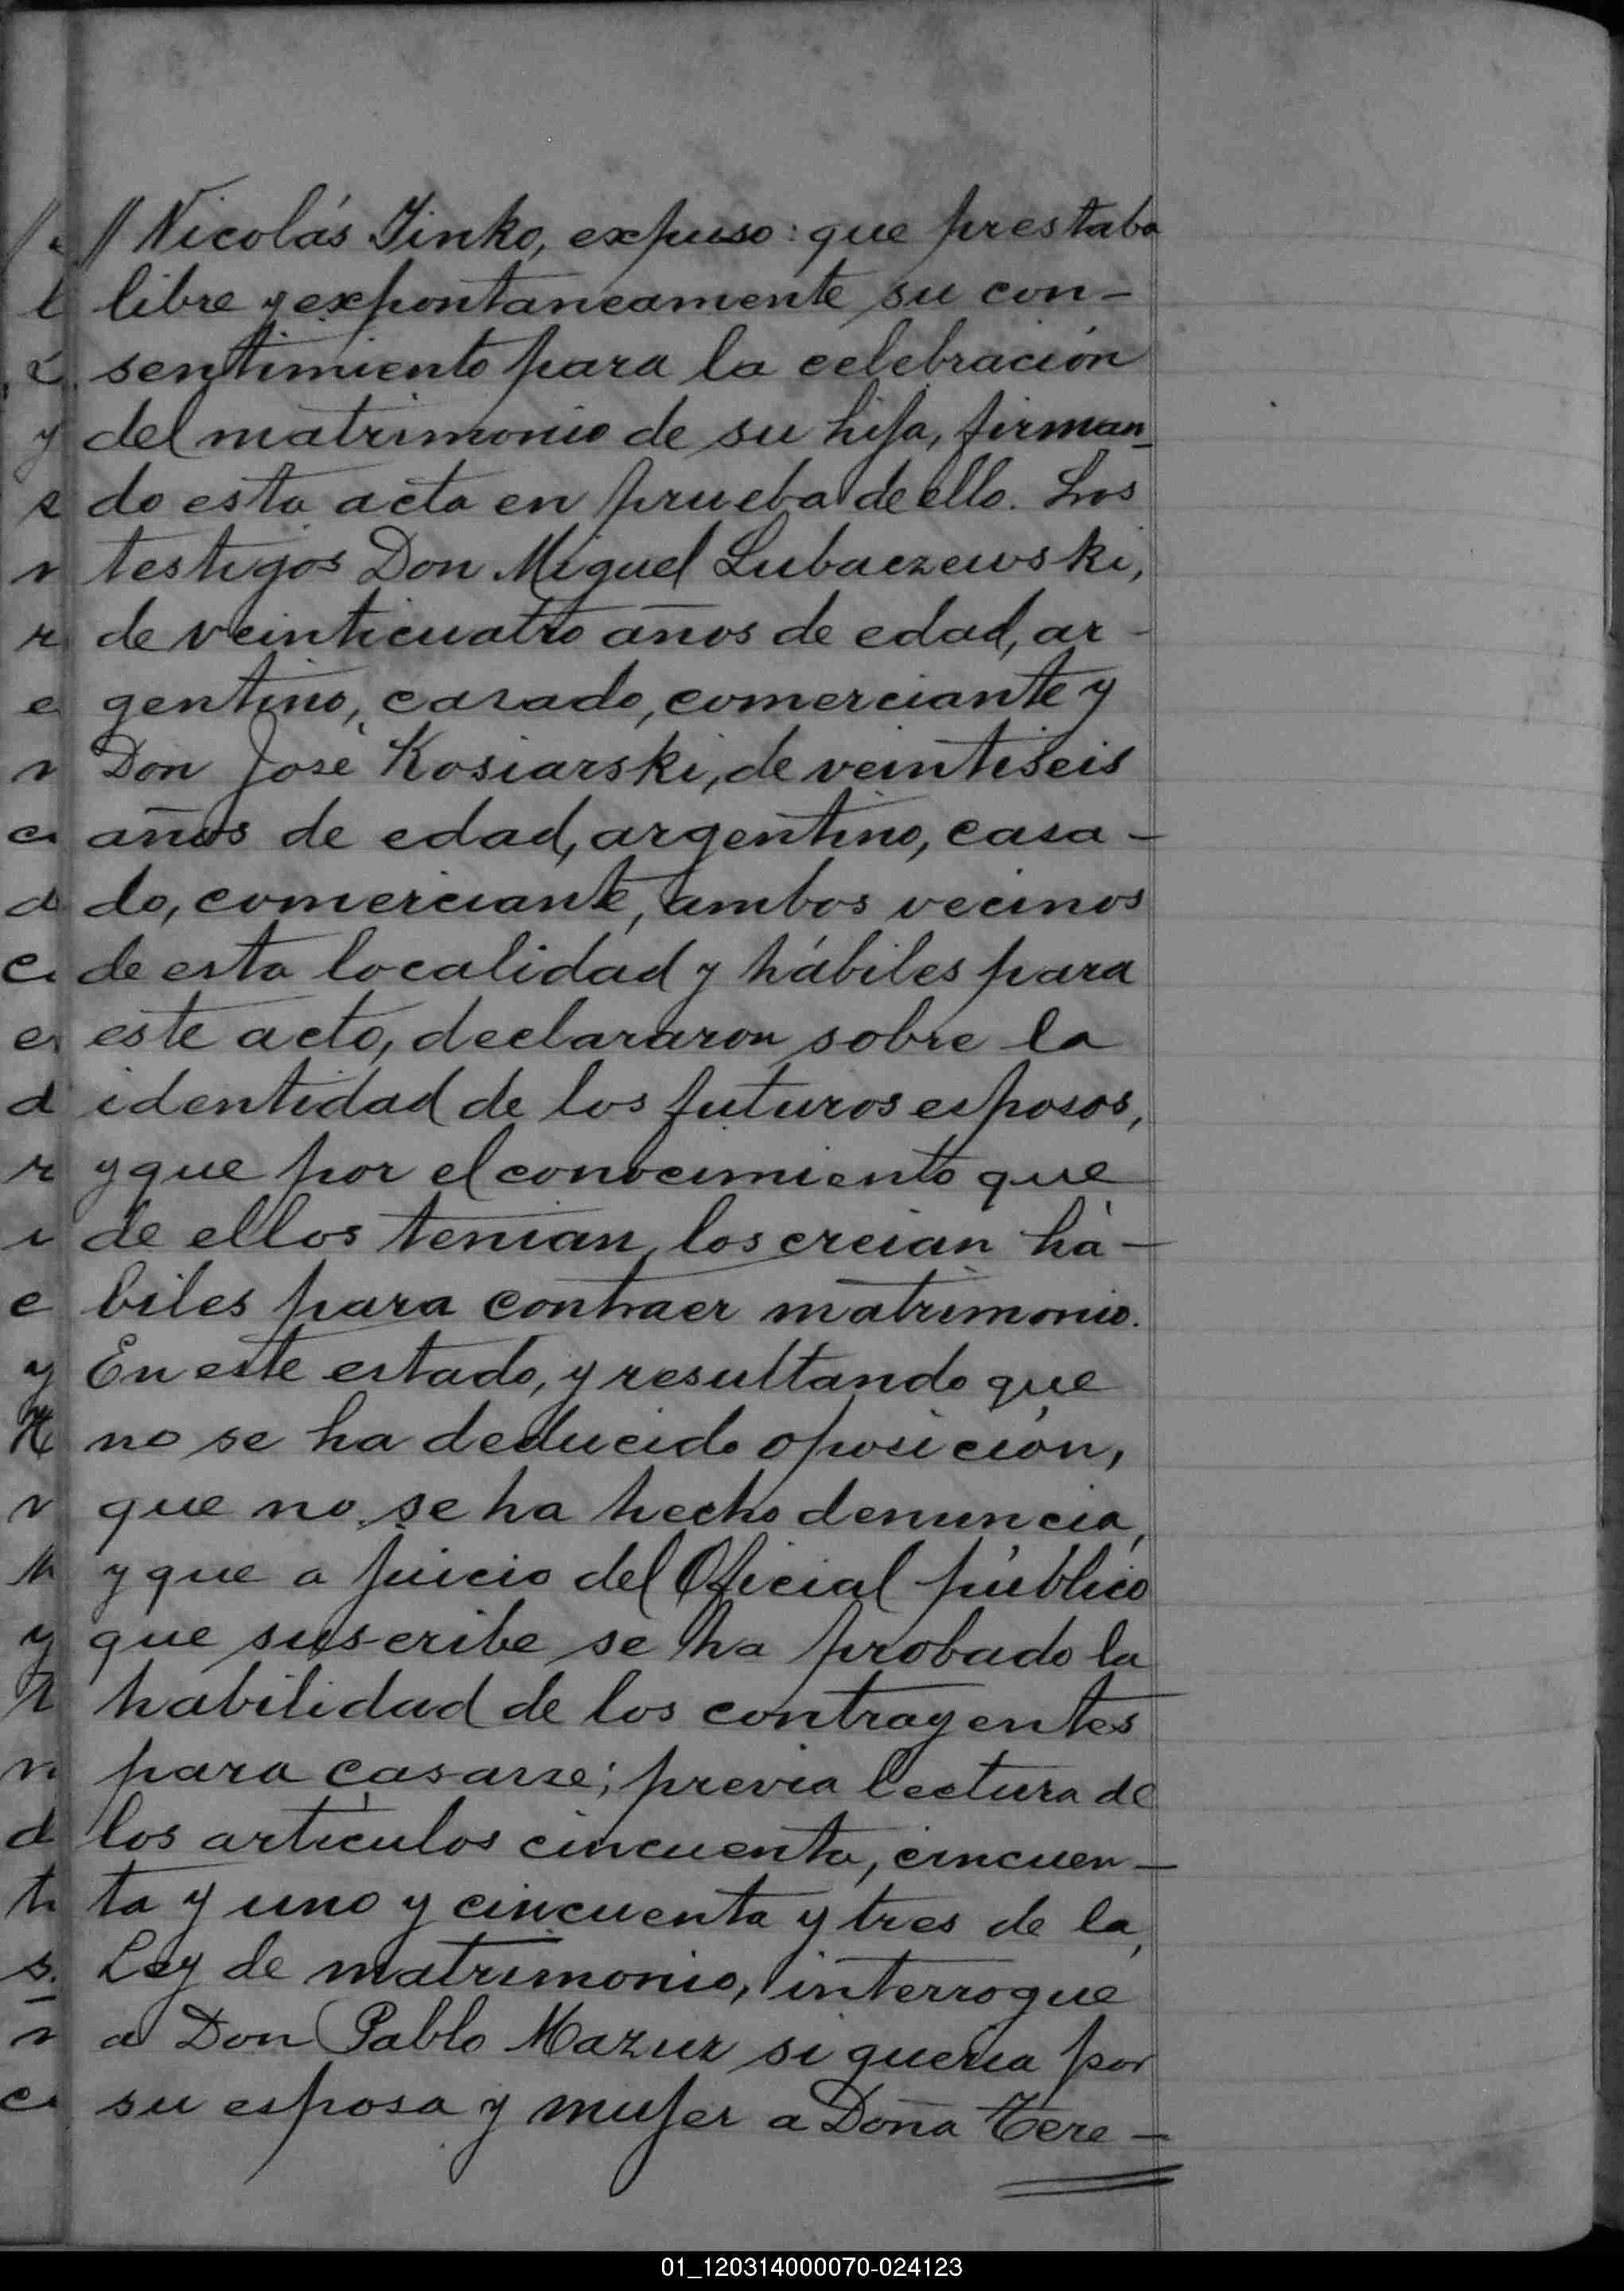 // Nicolás Tinko, expuso: que prestaba
libre y expontaneamente su con-
sentimiento para la celebración
del matrimonio de su hija, firman-
do esta acta en prueba de ello. Los
testigos Don Miguel Lubaczewski,
de veinticuatro años de edad, ar-
gentino, casado, comerciante y
Don José Kosiarski, de veintiseis
años de edad, argentino, casa-
do, comerciante, ambos vecinos
de esta localidad y hábiles para
este acto, declararon sobre la
identidad de los futuros esposos,
y que por el conocimiento que
de ellos tenian, los creian há-
biles para contraer matrimonio.
En este estado, y resultando que
no se ha deducido oposición,
que no se ha hecho denuncia,
y que a juicio del Oficial público
que suscribe se ha probado la
habilidad de los contrayentes
para casarse; previa lectura de
los artículos cincuenta, cincuen-
ta y uno y cincuenta y tres de la
Ley de matrimonio, interrogué
a Don Pablo Mazur si queria por
su esposa y mujer a Doña Tere-
01_120314000070-024123